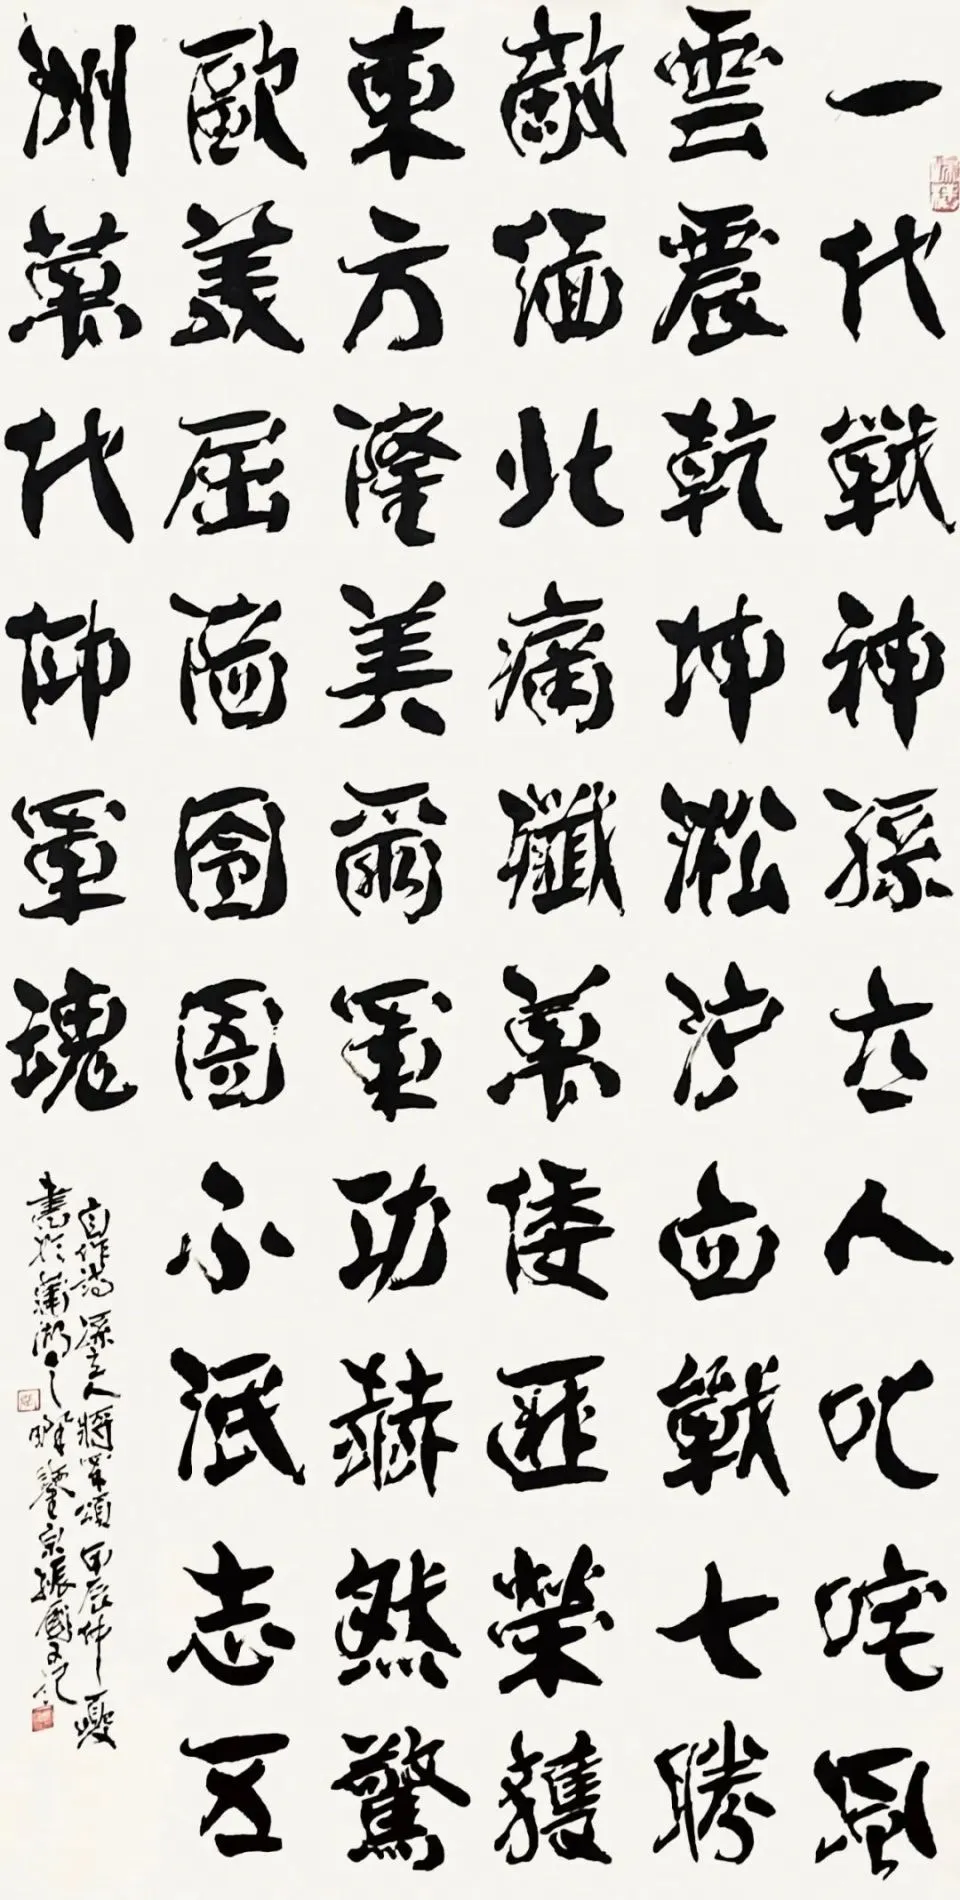 一代戰神孫立人叱咤風
雲震乾坤淞沪血戰七勝
敵緬北痛殲萬倭匪榮獲
東方隆美爾軍功赫然驚
歐美屈陷囹圄不泯志五
洲萬代仰軍魂
自作詩孫立人將軍頌甲辰仲夏
書於湖之畔宗振國又記